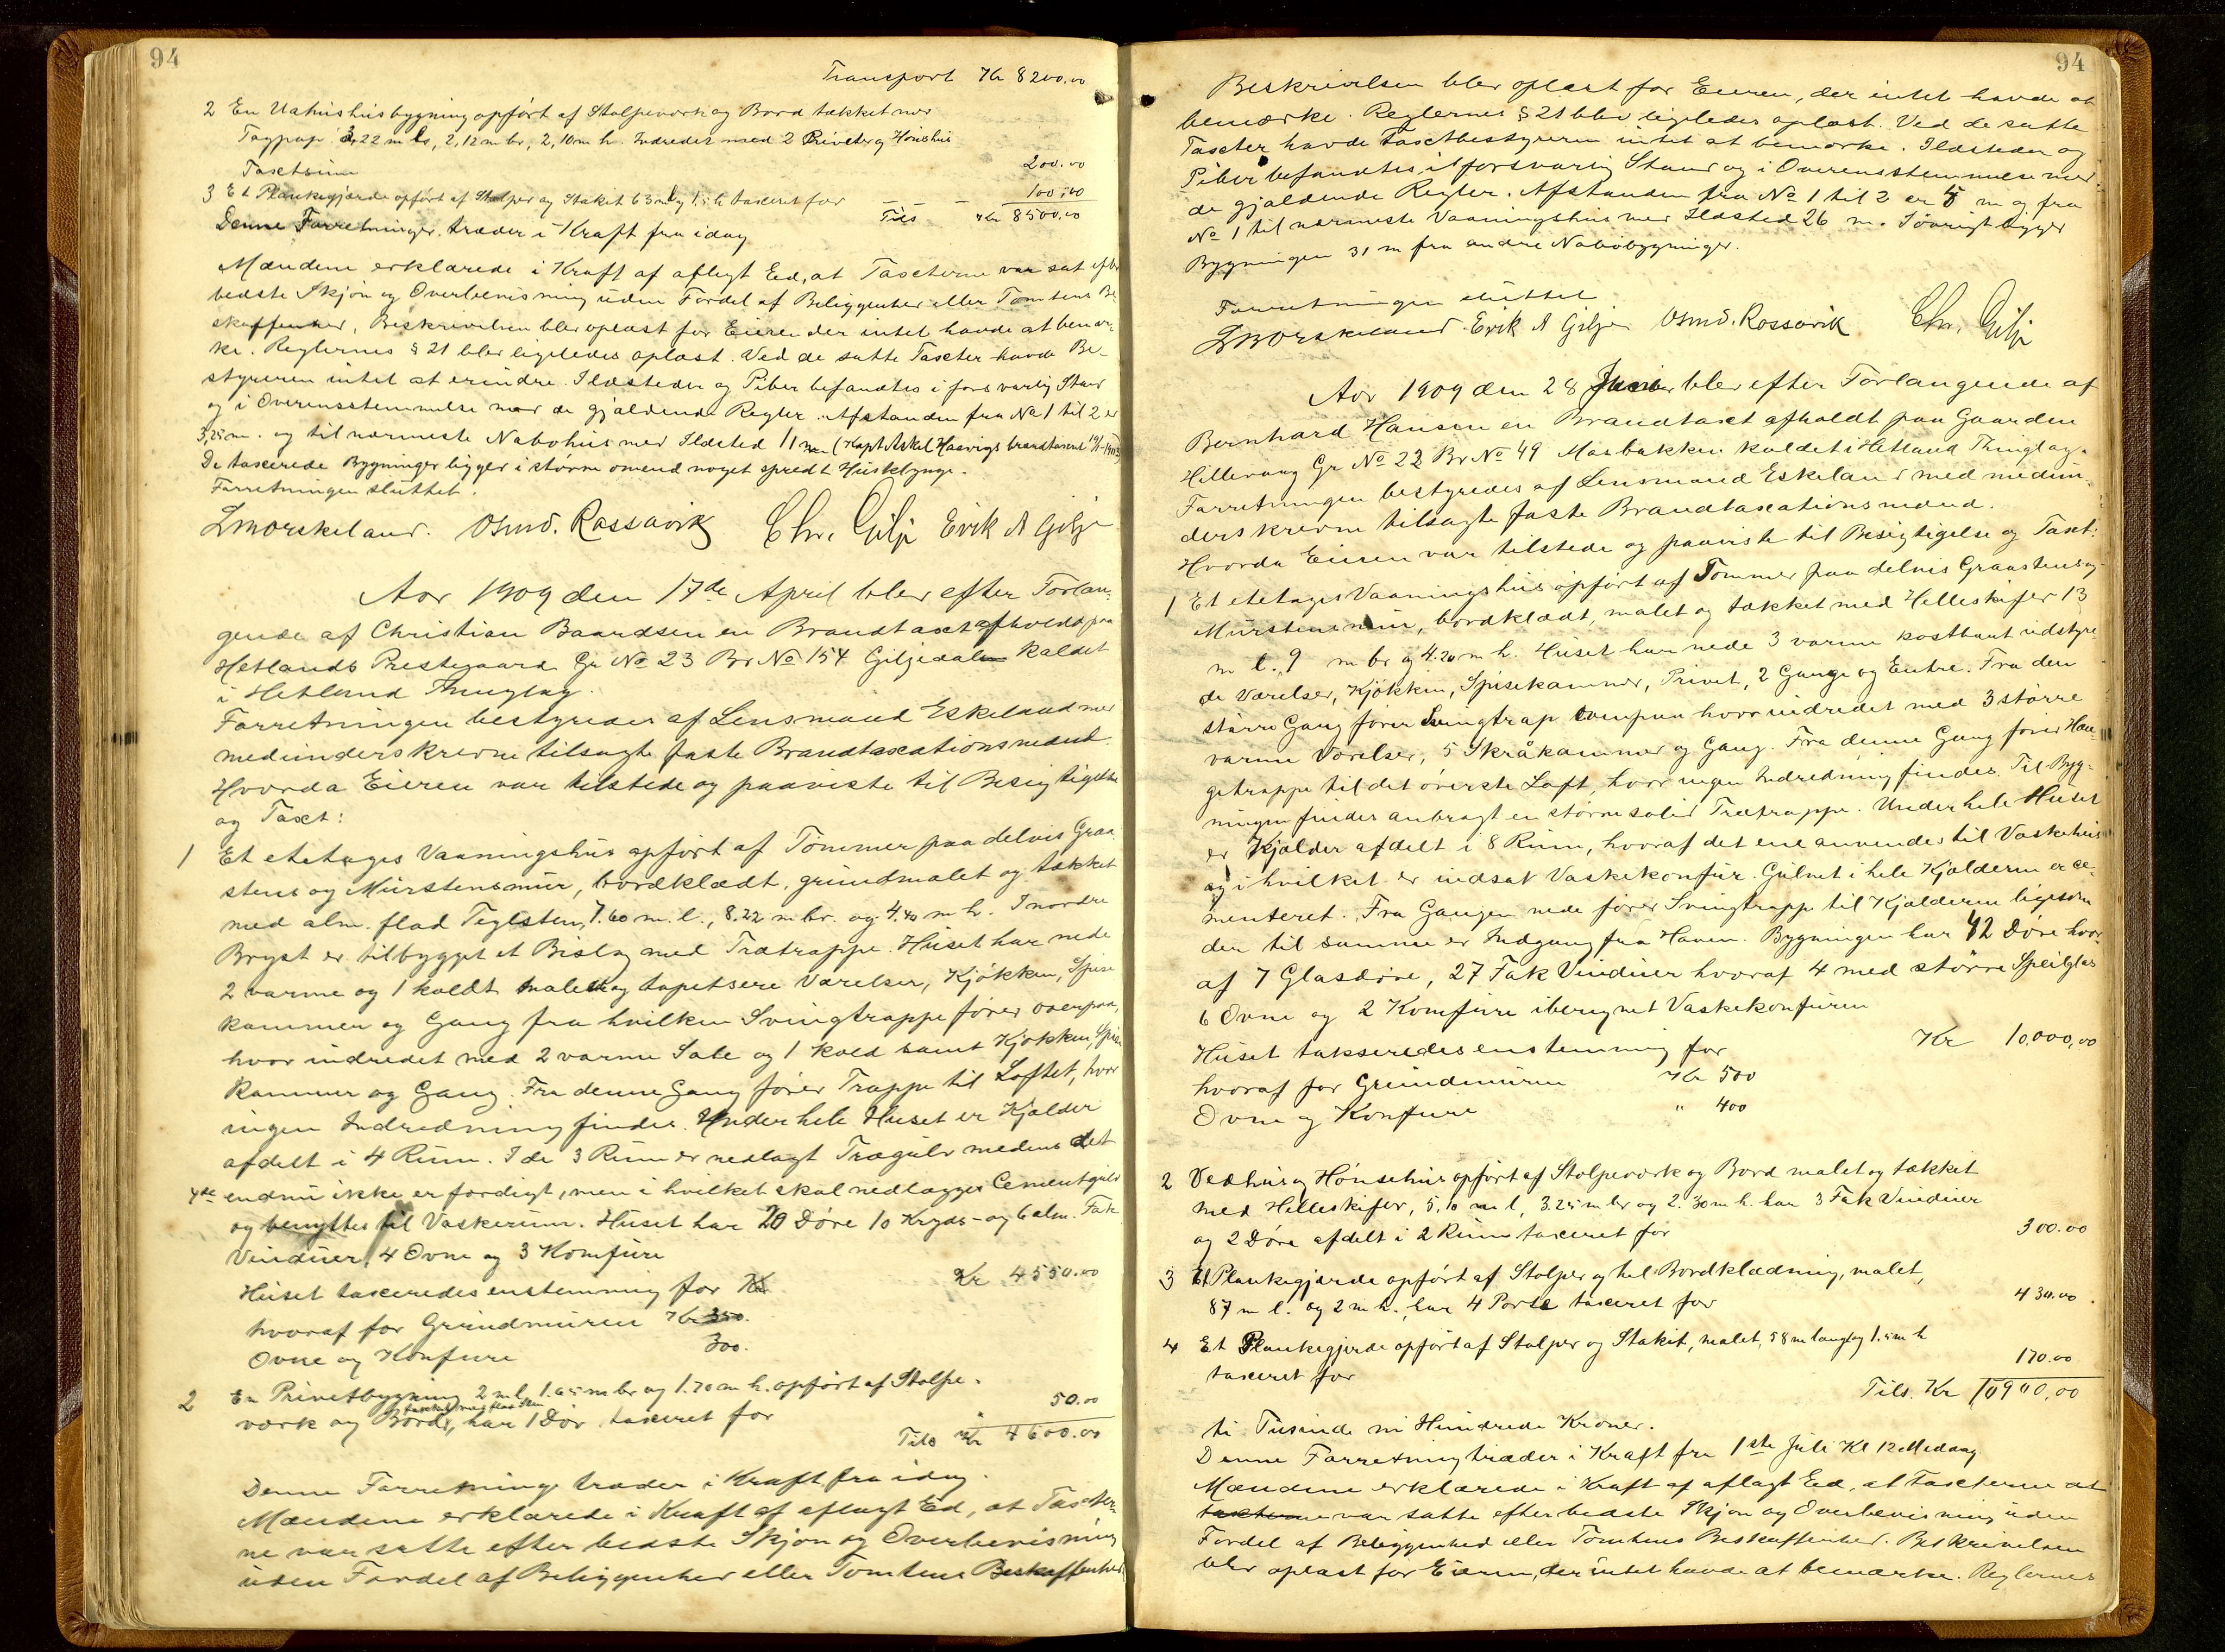 94
Transport Kr 8200.00
2 En Udhushusbygning opført af Stolpeværk og Bord tækket med
Tagpap 3,22 m l, 2,12 m br, 2,10 m h. Indredet med 2 Priveter og Hønshus
Taxtsum 200.00
3 Et Plankegjærde opført af Stolper og Stakit 63 m l og 1.5 h taxeret for 100,00
Tils Kr 8500.00
Denne Forretninger træder i Kraft fra idag
Mændene erklærede i Kraft af aflagt Ed, at Taxterne var sat efter
bedste Skjøn og Overbevisning uden Fordel af Beliggenhed eller Tomtens Be-
skaffenhed, Beskrivelsen blev oplæst for Eieren der intet havde at bemær-
ke. Reglernes § 21 blev ligeledes oplæst. Ved de satte Taxter havde Be-
styreren intet at erindre. Ildsteder og Piber befandtes i forsvarlig Stand
og i Overensstemmelse med de gjældende Regler. Afstanden fra No 1 til 2 er
3,25 m. og til nærmeste Nabohus med Ildsted 11 m (Kapt Askel Haavigs brandtaxeret
De taxerede Bygninger ligger i større omend noget spredt Husklynge.
Forretningen sluttet.
LMorskeland. Osmd. Rossavik Chr. Gilje Erik A Gilje
Aar 1909 den 17de April blev efter Forlan-
gende af Christian Baardsen en Brandtaxt afholdt paa
Hetlands Prestegaard Gr No 23 Br No 154 Giljedalen kaldet
i Hetland Thinglag.
Forretningen bestyredes af Lensmand Eskeland med
medunderskrevne tilsagte faste Brandtaxationsmænd.
Hvorda Eieren var tilstede og paaviste til Besigtigelse
og Taxt:
1 Et etetages Vaaningshus opført af Tømmer paa delvis Graa-
stens og Murstensmur, bordklædt, grundmalet og tækket
med alm. flad Teglsten, 7.60 m. l., 8.22 m br. og 4.40 m h. I nordre
Bryst er tilbygget et Bislag med Trætrappe. Huset har nede
2 varme og 1 koldt malet og tapetsere Værelser, Kjøkken, Spise
kammer og Gang fra hvilken Svingtrappe fører ovenpaa,
hvor indredet med 2 varme Sale og 1 kold samt Kjøkken, Spise
kammer og Gang. Fra denne Gang fører Trappe til Loftet, hvor
ingen Indredning findes. Under hele Huset er Kjælder
afdelt i 4 Rum. I de 3 Rum er nedlagt Trægulv medens det
4de endnu ikke er færdigt, men i hvilket skal nedlægges Cementgulv
og benyttes til Vaskerum. Huset har 20 Døre 10 Kryds- og 6 alm. Fak
Vinduer, 4 Ovne og 3 Komfure
Huset taxeredes enstemmig for Kr Kr 4550.00
hvoraf for Grundmuren Kr 350.
Ovne og Konfure 300.
2 En Privetbygning 2 m l, 1.65 m br og 1.70 m h. opført af Stolpe-
tækket med flad Sten
værk og Bord, har 1 Dør taxeret for 50.00
Tils Kr 4600.00
Denne Forretning træder i Kraft fra idag.
Mændene erklærede i Kraft af aflagt Ed, at Taxter-
ne var satte efter bedste Skjøn og Overbevisning
uden Fordel af Beliggenhed eller Tomtens Beskaffenhed.
94
Beskrivelsen blev oplæst for Eieren, der intet havde at
bemærke. Reglernes § 21 blev ligeledes oplæst. Ved de satte
Taxter havde Taxtbestyreren intet at bemærke. Ildsteder og
Piber befandtes i forsvarlig Stand og i Overensstemmelse med
de gjældende Regler. Afstanden fra No 1 til 2 er 5 m og fra
No 1 til nærmeste Vaaningshus med Ildsted 26 m. Iøvrigt ligger
Bygningen 31 m fra andre Nabobygninger.
Forretningen sluttet
LMorskeland. Erik A Gilje Osmd. Rossavik Chr. Gilje
Aar 1909 den 28 Juni blev efter Forlangende af
Bernhard Hansen en Brandtaxt afholdt paa Gaarden
Hillevaag Gr No 22 Br No 49 Marbakken kaldet i Hetland Thinglag.
Forretningen bestyredes af Lensmand Eskeland med medun-
derskrevne tilsagte faste Brandtaxationsmænd.
Hvorda Eieren var tilstede og paaviste til Besigtigelse og Taxt:
1 Et etetages Vaaningshus opført af Tømmer paa delvis Graastens og
Murstensmur, bordklædt, malet og tækket med Helleskifer 13
m l. 9 m br og 4.20 m h. Huset har nede 3 varme kostbart udstyre
de Værelser, Kjøkken, Spisekammer, Privet, 2 Gange og Entre. Fra den
større Gang fører Svingtrap ovenpaa hvor indredet med 3 større
varme Værelser, 5 Skråkammer og Gang. Fra denne Gang fører Hæn
getrappe til det øverste Loft, hvor ingen Indredning findes. Til Byg-
ningen findes anbragt en større solid Trætrappe. Under hele Huset
er Kjælder afdelt i 8 Rum, hvoraf det ene anvendes til Vaskehus
og i hvilket er indsat Vaskekonfur. Gulvet i hele Kjælderen er ce-
menteret. Fra Gangen nede fører Svingtrapp til Kjælderen ligesom
der til samme er Indgang fra Haven. Bygningen har 42 Døre hvor-
af 7 Glasdøre, 27 Fak Vinduer hvoraf 4 med større Speilglas
6 Ovne og 2 Komfure iberegnet Vaskekonfuren
Huset takseredes enstemmig for Kr 10.000,00
hvoraf for Grundmuren Kr 500
Ovne og Konfure " 400
2 Vedhus og Hønsehus opført af Stolpeværk og Bord malet og tækket
med Helleskifer, 5,10 m l, 3.25 m br og 2.30 m h. har 3 Fak Vinduer
og 2 Døre afdelt i 2 Rum taxeret for 300.00
3 Et Plankegjærde opført af Stolper og hel Bordklædning, malet,
87 m l. og 2 m h., har 4 Porte taxeret for 430.00
4 Et Plankegjerde opført af Stolper og Stakit, malet, 58 m lang og 1.5 m h
taxeret for 170.00
Tils. Kr 10900,00
ti Tusinde ni Hundrede Kroner.
Denne Forretning træder i Kraft fra 1ste Juli Kl 12 Middag
Mændene erklærede i Kraft af aflagt Ed, at Taxterne at
taxterne var satte efter bedste Skjøn og Overbevisning uden
Fordel af Beliggenhed eller Tomtens Beskaffenhed. Beskrivelsen
blev oplæst for Eieren, der intet havde at bemærke. Reglernes